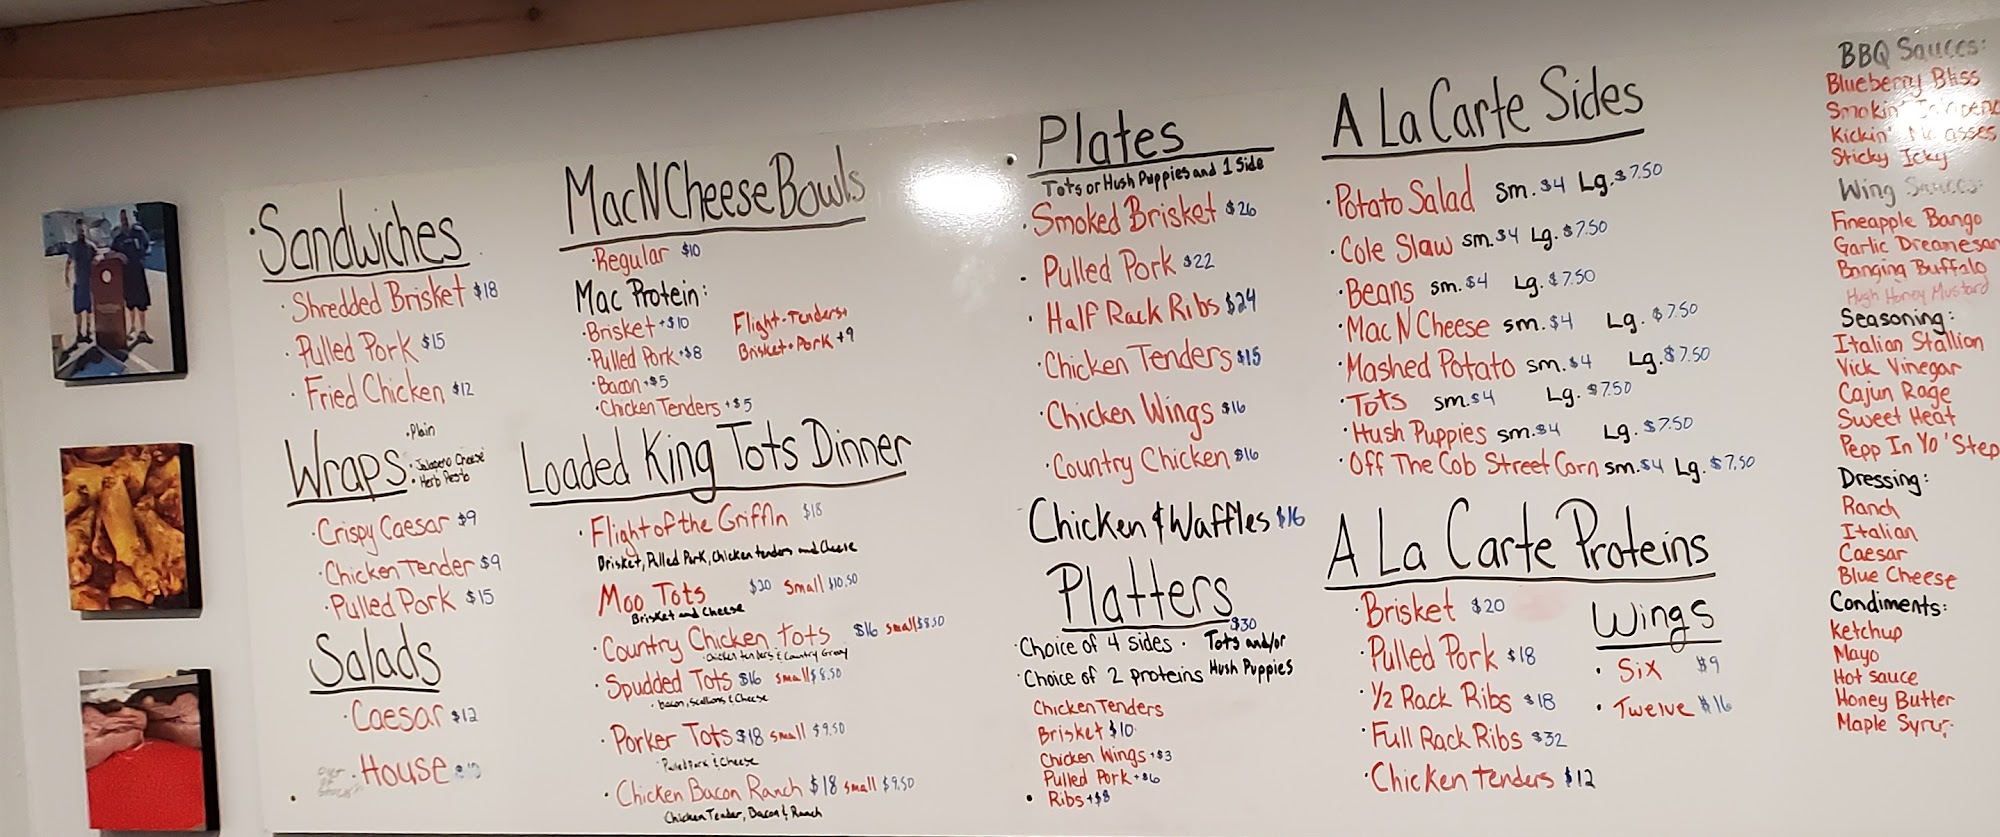 ·Sandwiches
· Shredded Brisket $18
· Pulled Pork $15
· Fried Chicken $12
Wraps
·Plain
·Jalapeno Cheese
·Herb Pesto
·Crispy Caesar $9
·Chicken Tender $9
·Pulled Pork $15
Salads
·Caesar $12
·House
Mac N Cheese Bowls
·Regular $10
Mac Protein:
·Brisket +$10
·Pulled Pork +$8
·Bacon +$5
·Chicken Tenders +$5
Flight-Tenders+
Brisket+Pork +9
Loaded King Tots Dinner
·Flight of the Griffin $18
Brisket, Pulled Pork, Chicken tenders and Cheese
Moo Tots $20 Small $10.50
Brisket and Cheese
·Country Chicken tots $16 small $8.50
·Chicken tenders & Country Gravy
·Spudded Tots $16 small $8.50
·bacon, Scallions & Cheese
·Porker Tots $18 small $9.50
·Pulled Pork & Cheese
·Chicken Bacon Ranch $18 small $9.50
Chicken Tender, Bacon & Ranch
Plates
Tots or Hush Puppies and 1 Side
·Smoked Brisket $26
· Pulled Pork $22
· Half Rack Ribs $24
·Chicken Tenders $15
·Chicken Wings $16
·Country Chicken $16
Chicken & Waffles $16
Platters
$30
·Choice of 4 sides · Tots and/or
·Choice of 2 proteins Hush Puppies
Chicken Tenders
Brisket $10
Chicken Wings +$3
Pulled Pork +$6
Ribs +$8
A La Carte Sides
·Potato Salad Sm. $4 Lg. $7.50
·Cole Slaw sm. $4 Lg. $7.50
·Beans sm. $4 Lg. $7.50
·Mac N Cheese sm. $4 Lg. $7.50
·Mashed Potato sm. $4 Lg. $7.50
·Tots sm. $4 Lg. $7.50
·Hush Puppies sm. $4 Lg. $7.50
·Off The Cob Street Corn sm. $4 Lg. $7.50
A La Carte Proteins
·Brisket $20
·Pulled Pork $18
·1/2 Rack Ribs $18
·Full Rack Ribs $32
·Chicken tenders $12
Wings
· Six $9
· Twelve $16
BBQ Sauces:
Blueberry Bliss
Smokin'
Kickin'
Sticky Icky
Wing Sauces:
Pineapple Bango
Garlic Dreamesan
Banging Buffalo
Hush Honey Mustard
Seasoning:
Italian Stallion
Vick Vinegar
Cajun Rage
Sweet Heat
Pepp In Yo' Step
Dressing:
Ranch
Italian
Caesar
Blue Cheese
Condiments:
Ketchup
Mayo
Hot sauce
Honey Butter
Maple Syrup